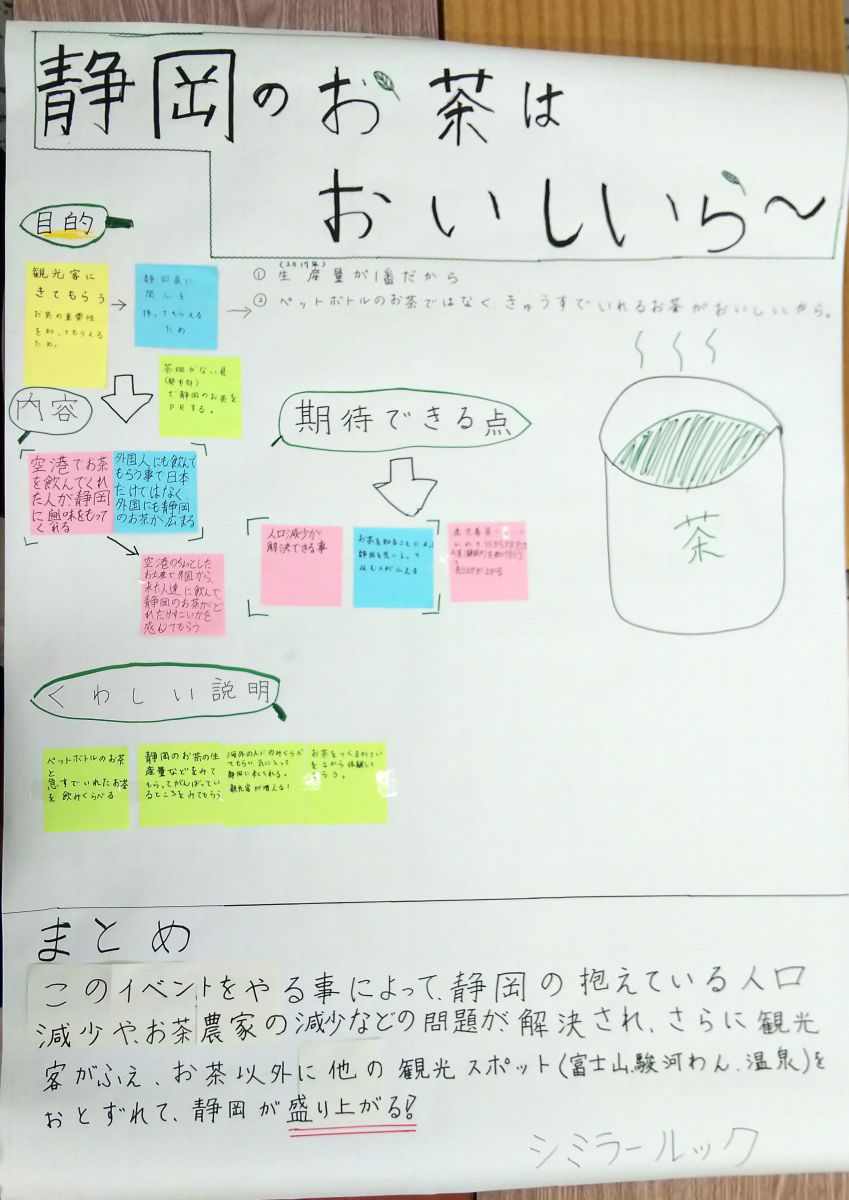 静岡のお茶は
おいしいら〜
目的
観光客に
きてもらう
お茶の重要性
を知ってもらえる
ため。
静岡県に
関心を
持ってもらえる
ため
(2019年)
① 生産量が1番だから
② ペットボトルのお茶ではなく、きゅうすでいれるお茶がおいしいから。
茶畑がない県
(都市部)
で静岡のお茶を
PRする。
内容
空港でお茶
を飲んでくれ
た人が、静岡
に興味をもって
くれる
外国人にも飲んで
もらう事で日本
だけではなく、
外国にも静岡
のお茶が広まる
空港の
お土産で外国から、
来た人達に飲んで、
静岡のお茶がど
れだけすごいかを
感んでもらう
期待できる点
人口減少が
解決できる事
お茶を知ることによって
静岡を
住む人がふえる
売上げが上がる
茶
くわしい説明
ペットボトルのお茶
と
急すでいれたお茶
を飲みくらべる
静岡のお茶の生
産量などをみて
もらってがんばってい
るところをみてもらう
海外の人にのみくらべ
てもらい、気に入って
静岡に来てくれる。
観光客が増える!
お茶をつくるかてい
を1から体験して
もらう。
まとめ
このイベントをやる事によって、静岡の抱えている人口
減少や、お茶農家の減少などの問題が解決され、さらに観光
客がふえ、お茶以外に他の観光スポット(富士山、駿河わん、温泉)を
おとずれて、静岡が盛り上がる!
シミラールック